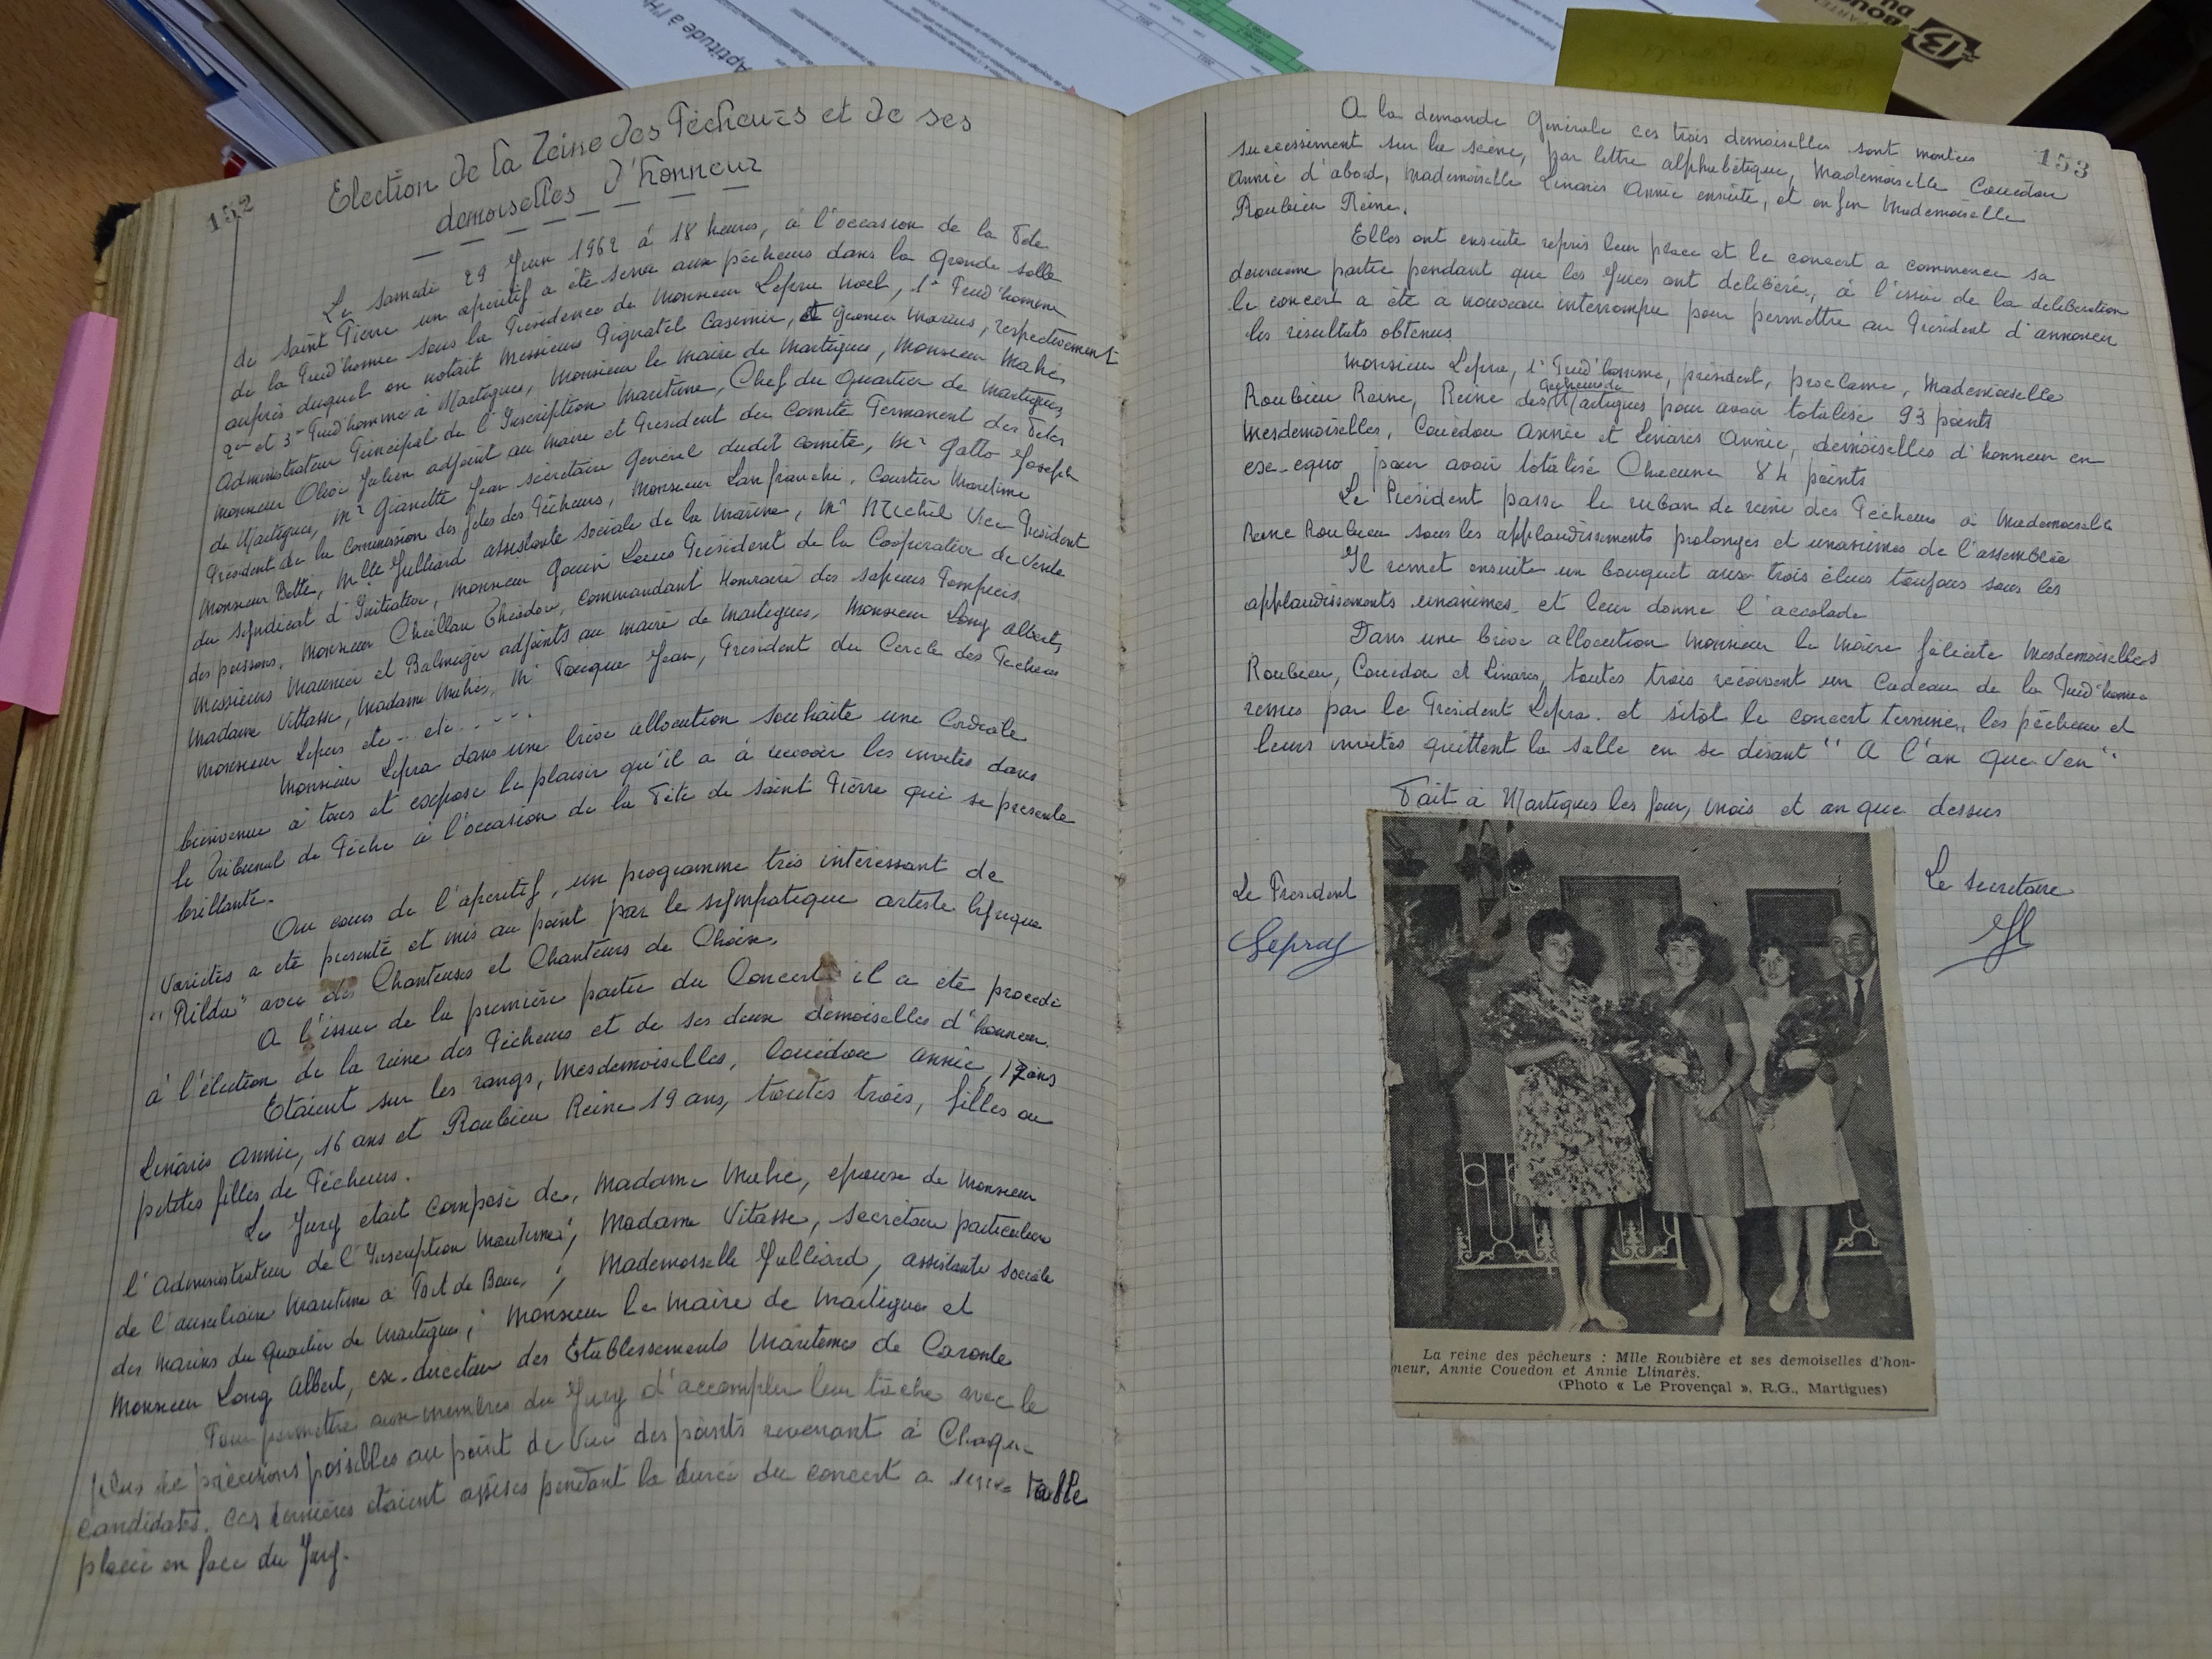 152
Election de la Reine des Pêcheurs et de ses
demoiselles d'honneur
Le samedi 29 Juin 1962 à 18 heures, à l'occasion de la Fête
de Saint Pierre un apéritif a été servi aux pêcheurs dans la Grande Salle
de la Prud'homie sous la Présidence de Monsieur Lepra Noel, 1er Prud'homme
auprès duquel on notait Messieurs Pignatel Casimir, et Marius, respectivement
2me et 3me Prud'homme à Martigues, Monsieur le Maire de Martigues, Monsieur Mahé
Administrateur Principal de l'Inscription Maritime, Chef du Quartier de Martigues
Monsieur Olive Julien adjoint au Maire et Président du Comité Permanent des Fêtes
de Martigues, Mr Gianetti Jean secrétaire Général dudit comité, Mr Gatto Joseph
Président de la Commission des fêtes des Pêcheurs, Monsieur Lanfranchi, Courtier Maritime
Monsieur Betti, Mlle Julliard assistante sociale de la Marine, Mr Michel Vice Président
du Syndicat d'Initiative, Monsieur Gouin Louis Président de la Coopérative de Vente
des poissons, Monsieur Chaillan Théodore, Commandant Honoraire des Sapeurs Pompiers
Messieurs Maunier et Balmigère adjoints au maire de Martigues, Monsieur Long Albert,
Madame Vittasse, Madame Mahé, Mr Fouque Jean, Président du Cercle des Pêcheurs
Monsieur Lepus etc... etc....
Monsieur Lepra dans une brève allocution souhaite une Cordiale
bienvenue à tous et expose le plaisir qu'il a à recevoir les invités dans
le Tribunal de Pêche à l'occasion de la Fête de Saint Pierre qui se présente
brillante.
Au cours de l'apéritif, un programme très intéressant de
Variétés a été présenté et mis au point par le sympatique artiste lyrique
"Rilda" avec des Chanteuses et Chanteurs de Choix.
A l'issue de la première partie du Concert il a été procédé
à l'élection de la reine des Pêcheurs et de ses deux demoiselles d'honneur.
Etaient sur les rangs, Mesdemoiselles, Couëdou Annie, 17 ans
Linarès Annie, 16 ans et Roubieu Reine 19 ans, toutes trois, filles ou
petites filles de Pêcheurs.
Le Jury était composé de, Madame Mahé, épouse de Monsieur
l'Administrateur de l'Inscription Maritime; Madame Vitasse, secrétaire particulière
de l'auxiliaire Maritime à Port de Bouc; Mademoiselle Julliard, assistante sociale
des Marins du Quartier de Martigues; Monsieur le Maire de Martigues et
Monsieur Long Albert, ex-directeur des Etablissements Maritimes de Caronte
Pour permettre aux membres du Jury d'accomplir leur tâche avec le
plus de précisions possibles au point de vue des points revenant à Chaque
Candidates. Ces dernières étaient assises pendant la durée du concert a une table
placée en face du Jury.
153
A la demande Générale ces trois demoiselles sont montées
successiment sur la scène, par lettre alphabétique, Mademoiselle Couëdou
Annie d'abord, Mademoiselle Linarès Annie ensuite, et enfin Mademoiselle
Roubieu Reine.
Elles ont ensuite repris leur place et le concert a commencé sa
deuxième partie pendant que les Jures ont délibéré, à l'issue de la délibération
le concert a été à nouveau interrompu pour permettre au Président d'annoncer
les résultats obtenus
Monsieur Lepra, 1er Prud'homme, président, proclame, Mademoiselle
Roubieu Reine, Reine des Pêcheurs de Martigues pour avoir totalisé 93 points
Mesdemoiselles, Couëdou Annie et Linarès Annie, demoiselles d'honneur en
exe-equo pour avoir totalisé Chacune 84 points
Le Président passe le ruban de reine des Pêcheurs à Mademoiselle
Reine Roubieu sous les applaudissements prolongés et unanimes de l'assemblée
Il remet ensuite un bouquet aux trois élues toujours sous les
applaudissements unanimes et leur donne l'accolade
Dans une brève allocution Monsieur le Maire félicite Mesdemoiselles
Roubieu, Couëdou et Linarès, toutes trois reçoivent un Cadeau de la Prud'homie
remis par le Président Lepra. et sitôt le concert terminé, les pêcheurs et
leurs invités quittent la salle en se disant "A l'an que ven"
Fait à Martigues les jour, mois et an que dessus
Le Président
Le secrétaire
Lepra
La reine des pêcheurs : Mlle Roubière et ses demoiselles d'hon-
neur, Annie Couedon et Annie Llinarès.
(Photo « Le Provençal », R.G., Martigues)
Aptitude à l'H
13
BOUC
DU